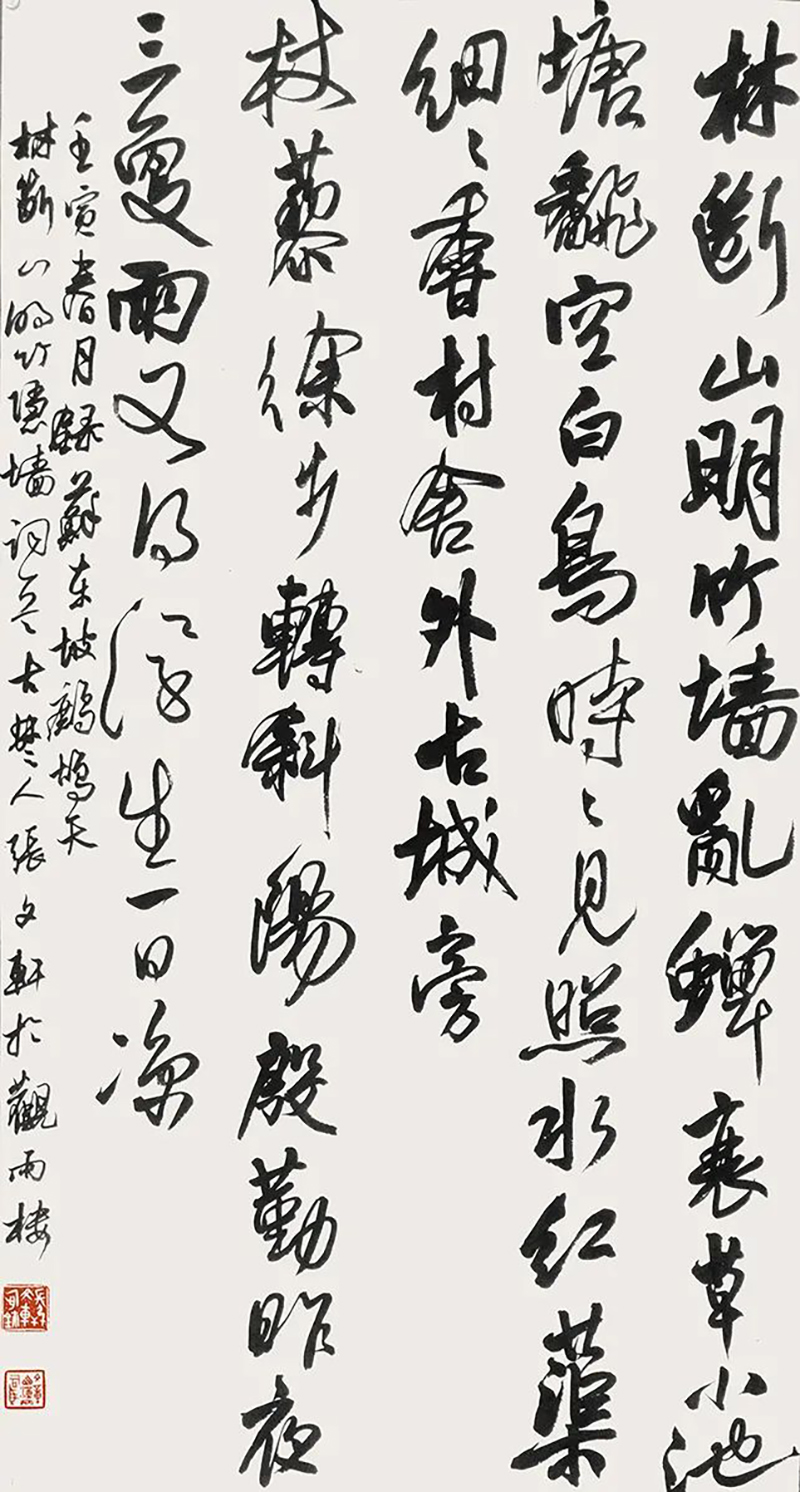 林斷山明竹墙亂蟬衰草小池
塘飜空白鳥時〻見照水紅蕖
細〻香村舍外古城旁
杖藜徐步轉斜陽殷勤昨夜
三更雨又得浮生一日凉
壬寅春月録蘇东坡鷓鴣天
林斷山明竹隱墙词古楚人張文軒於觀雨楼